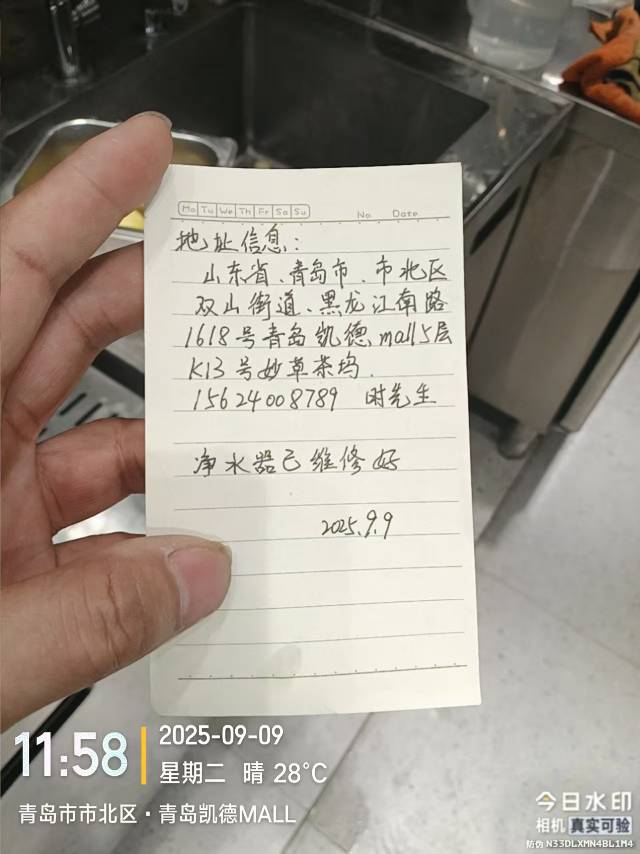 Mo Tu We Th Fr Sa Su No. Date
地址信息:
山东省、青岛市、市北区
双山街道、黑龙江南路
1618号青岛凯德mall5层
K13号妙草茶坞.
15624008789 时先生
净水器已维修好
2025.9.9
11:58
2025-09-09
星期二 晴 28°C
青岛市市北区·青岛凯德MALL
今日水印
相机 真实可验
防伪 N33DLXMN4BL1M4